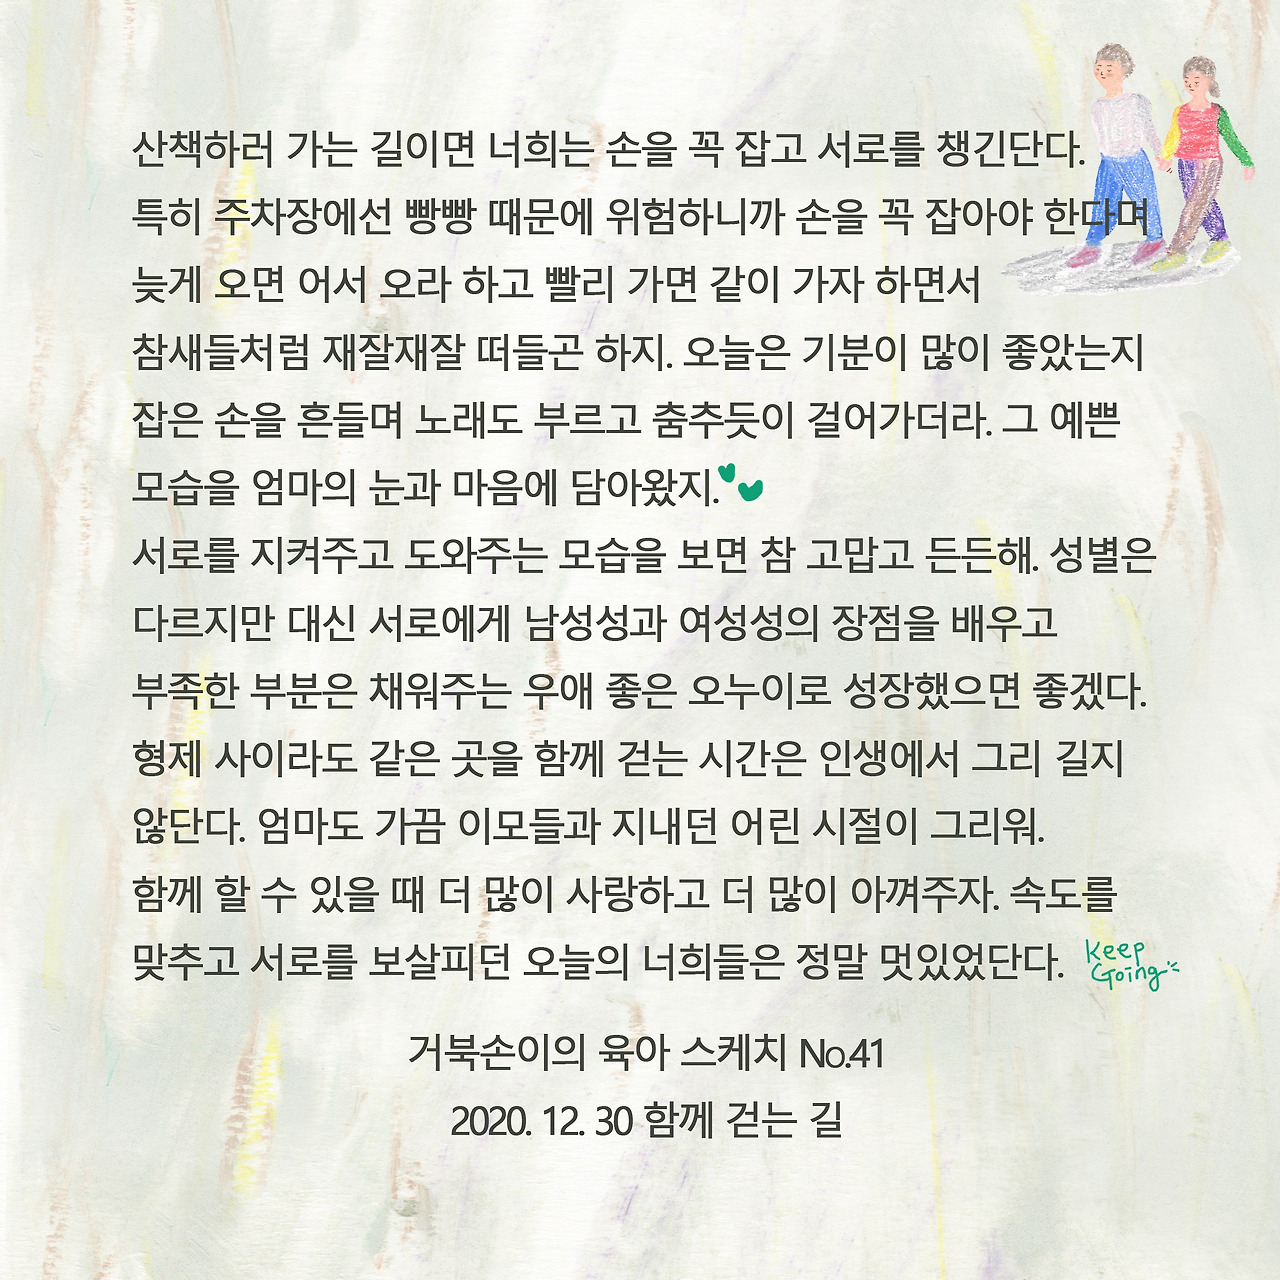 산책하러 가는 길이면 너희는 손을 꼭 잡고 서로를 챙긴단다.
특히 주차장에선 빵빵 때문에 위험하니까 손을 꼭 잡아야 한다며
늦게 오면 어서 오라 하고 빨리 가면 같이 가자 하면서
참새들처럼 재잘재잘 떠들곤 하지. 오늘은 기분이 많이 좋았는지
잡은 손을 흔들며 노래도 부르고 춤추듯이 걸어가더라. 그 예쁜
모습을 엄마의 눈과 마음에 담아왔지.
서로를 지켜주고 도와주는 모습을 보면 참 고맙고 든든해. 성별은
다르지만 대신 서로에게 남성성과 여성성의 장점을 배우고
부족한 부분은 채워주는 우애 좋은 오누이로 성장했으면 좋겠다.
형제 사이라도 같은 곳을 함께 걷는 시간은 인생에서 그리 길지
않단다. 엄마도 가끔 이모들과 지내던 어린 시절이 그리워.
함께 할 수 있을 때 더 많이 사랑하고 더 많이 아껴주자. 속도를
맞추고 서로를 보살피던 오늘의 너희들은 정말 멋있었단다.
Keep
Going
거북손이의 육아 스케치 No.41
2020. 12. 30 함께 걷는 길